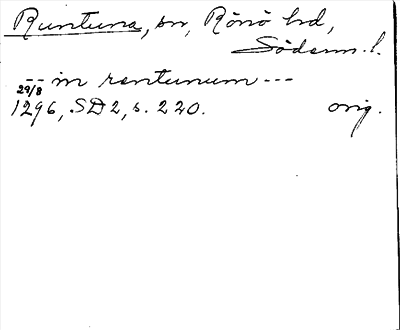 Runtuna, sn, Rönö hd,
Söderm. l.
-- in rentunum ---
29/8
1296, SD 2, s. 220. orig.